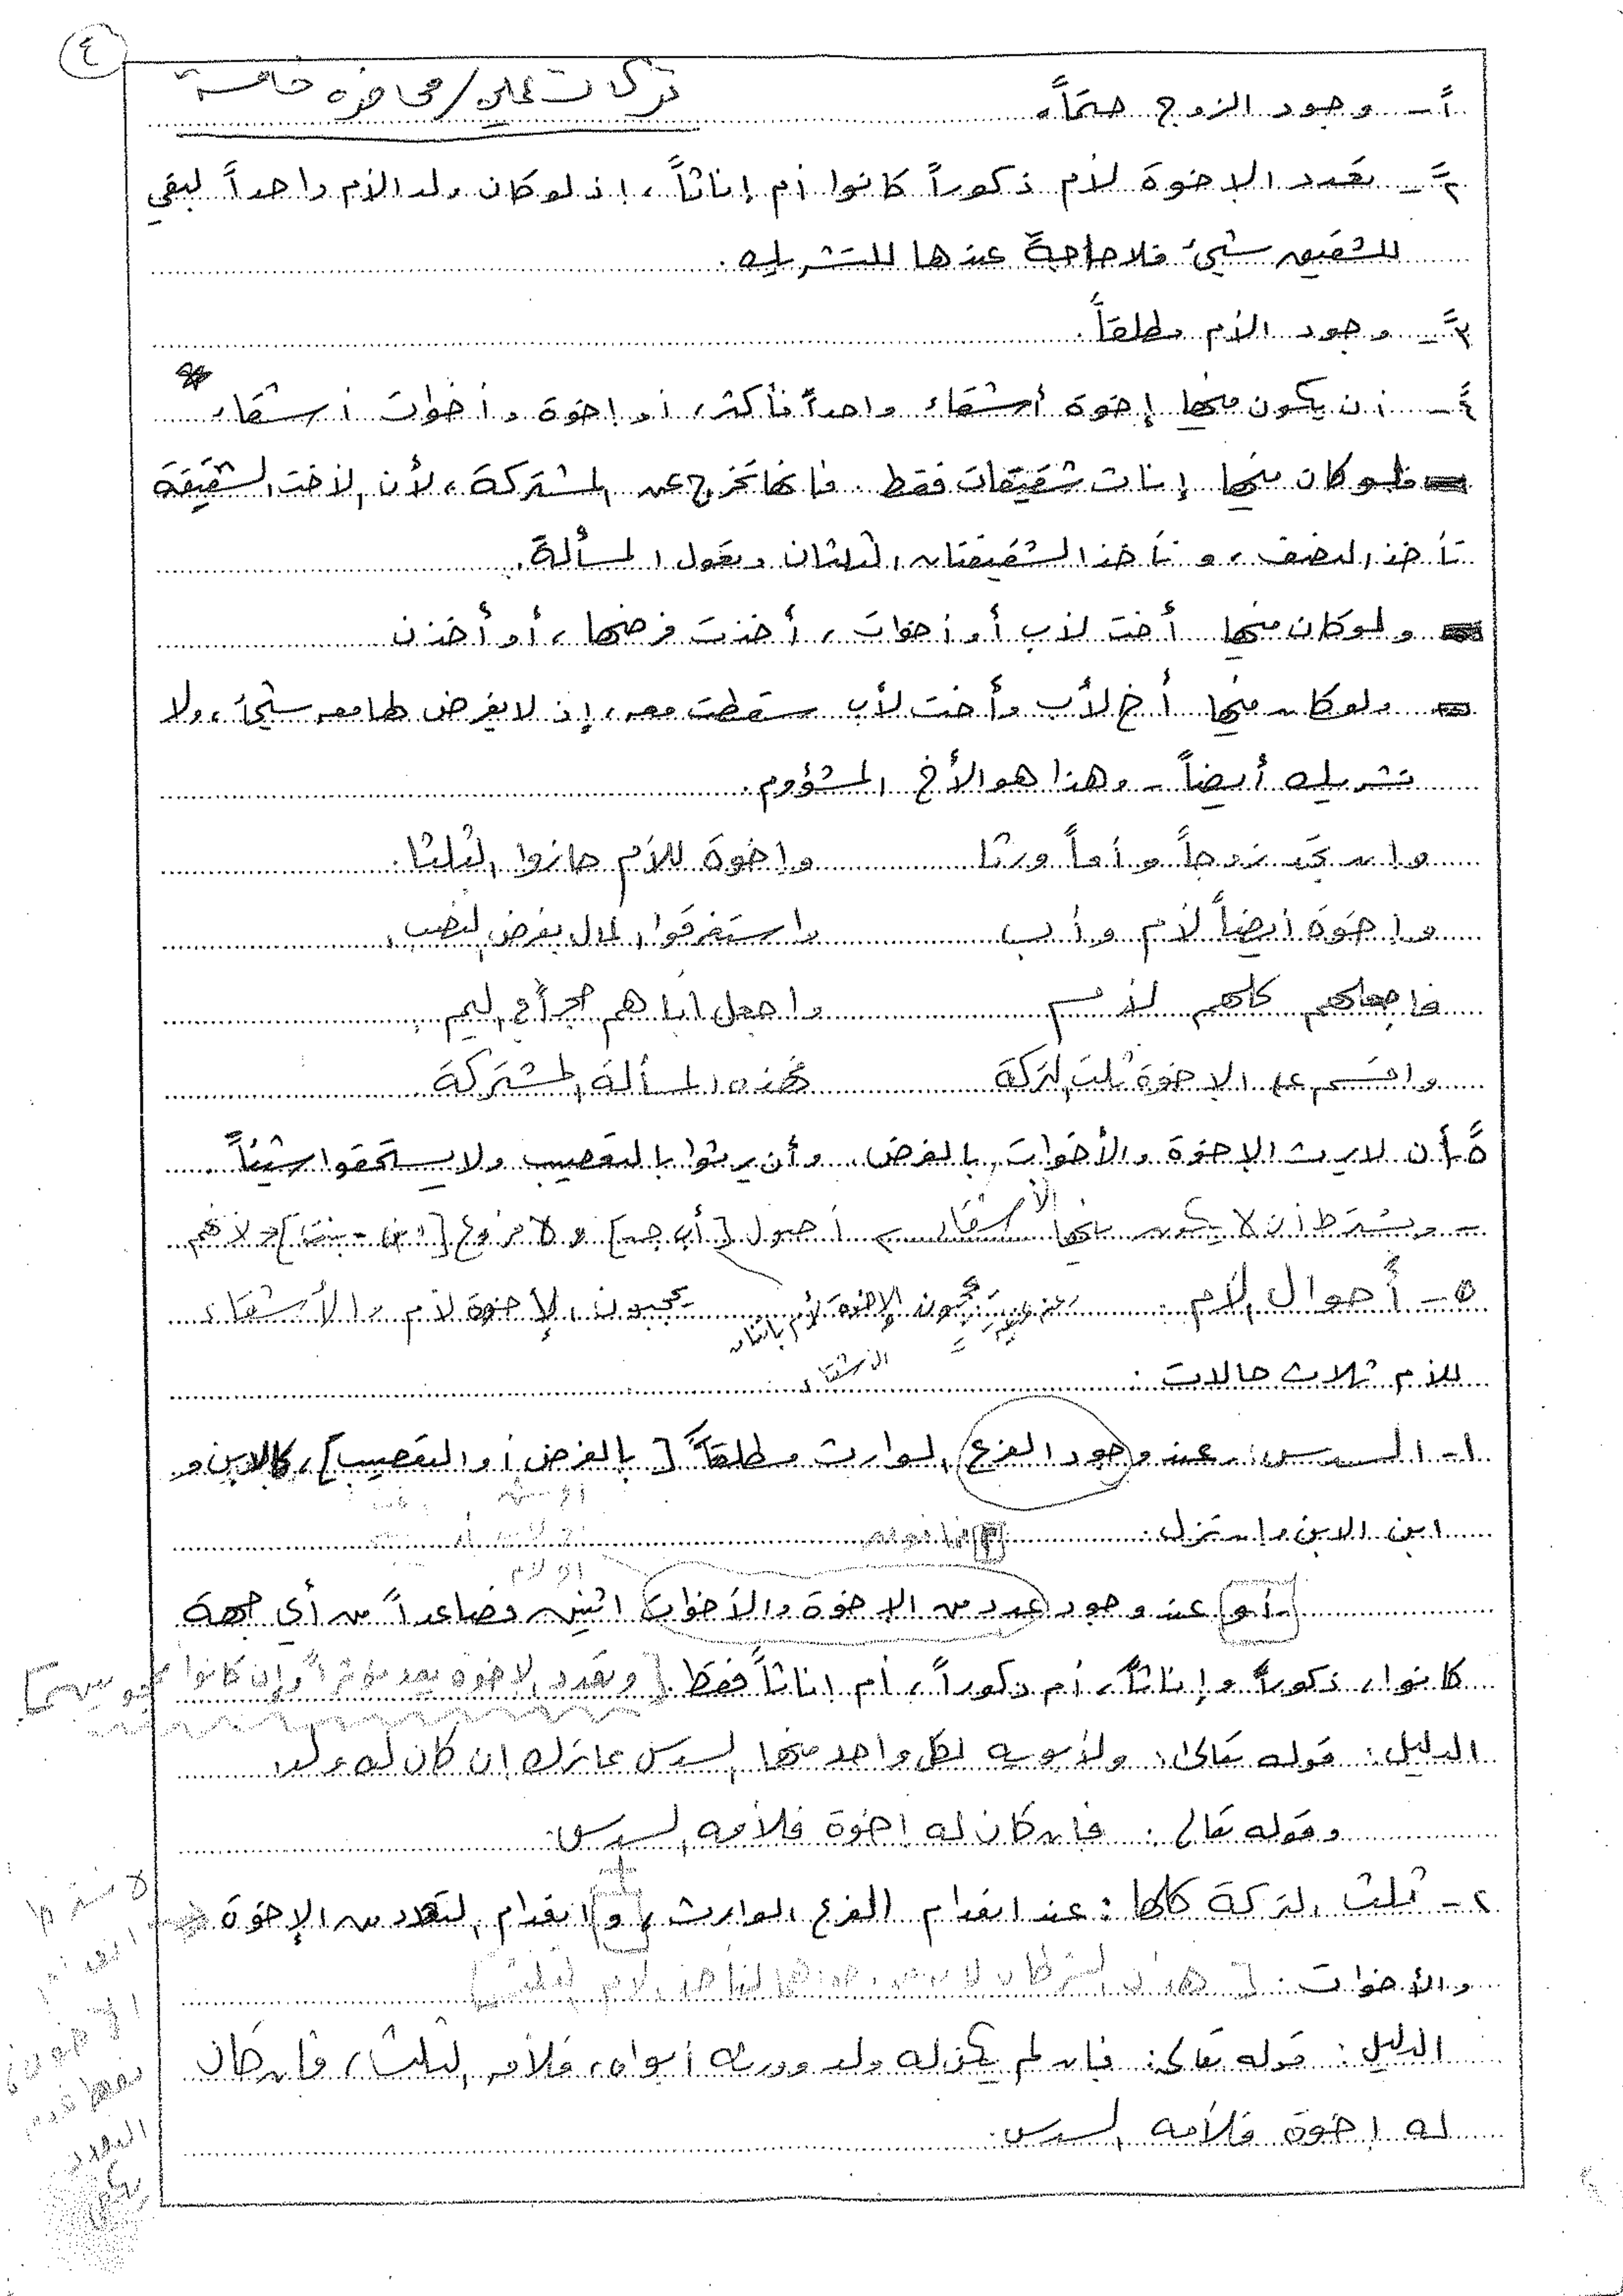 ٤
تركات عملي / محاضرة خامسة
١ً - وجود الزوج حتماً.
٢ً - تعدد الإخوة لأم ذكوراً كانوا أم إناثاً، إذ لو كان ولد الأم واحداً لبقي
للشقيق شيئ فلا حاجة عندها للتشريك.
٣ً - وجود الأم مطلقاً.
٤ً - أن يكون فيها إخوة أشقاء واحداً فأكثر، أو إخوة وأخوات أشقاء.
فلو كان فيها إناث شقيقات فقط. فإنها تخرج عن المشتركة، لأن الأخت الشقيقة
تأخذ النصف، وتأخذ الشقيقتان الثلثان وتعول المسألة.
ولو كان فيها أخت لأب أو أخوات، أخذت فرضها، أو أخذن
ولو كان فيها أخ لأب وأخت لأب سقطت معه، إذ لا يفرض لها معه شيئ، ولا
تشريك أيضاً - وهذا هو الأخ المشؤوم.
وإن تجد زوجاً وأماً ورثا وإخوة للأم حازوا الثلثا.
وإخوة أيضاً لأم وأب واستغرقوا المال بفرض النصب.
فاجعلهم كلهم لأم واجعل أباهم حجراً في اليم.
واقسم على الإخوة ثلث التركة فهذه المسألة المشتركة
٥ً أن لا يرث الإخوة والأخوات بالفرض. وأن يرثوا بالتعصيب ولا يستحقوا شيئاً.
- ويشترط أن لا يكون فيها أصول [أب جد] ولا فروع [ابن - بنت] لأنهم
يحجبون الإخوة لأم والأشقاء
يحجبون الإخوة لأم باتفاق
الأشقاء
٥ - أحوال الأم
للأم ثلاث حالات:
١ - السدس: عند وجود الفرع الوارث مطلقاً [بالفرض أو التعصيب]، كالابن و
ابن الابن وإن نزل.
أو لأم
أو عند وجود عدد من الإخوة والأخوات اثنين فصاعداً من أي جهة
كانوا، ذكوراً وإناثاً، أم ذكوراً، أم إناثاً فقط. [وتعدد الإخوة يعد مؤثراً وإن كانوا محجوبين]
الدليل: قوله تعالى: ولأبويه لكل واحد منهما السدس مما ترك إن كان له ولد.
وقوله تعالى: فإن كان له إخوة فلأمه السدس.
٢ - ثلث التركة كلها: عند انعدام الفرع الوارث، و انعدام التعدد من الإخوة
والأخوات.
الدليل: قوله تعالى: فإن لم يكن له ولد وورثه أبواه، فلأمه الثلث، فإن كان
له إخوة فلأمه السدس.